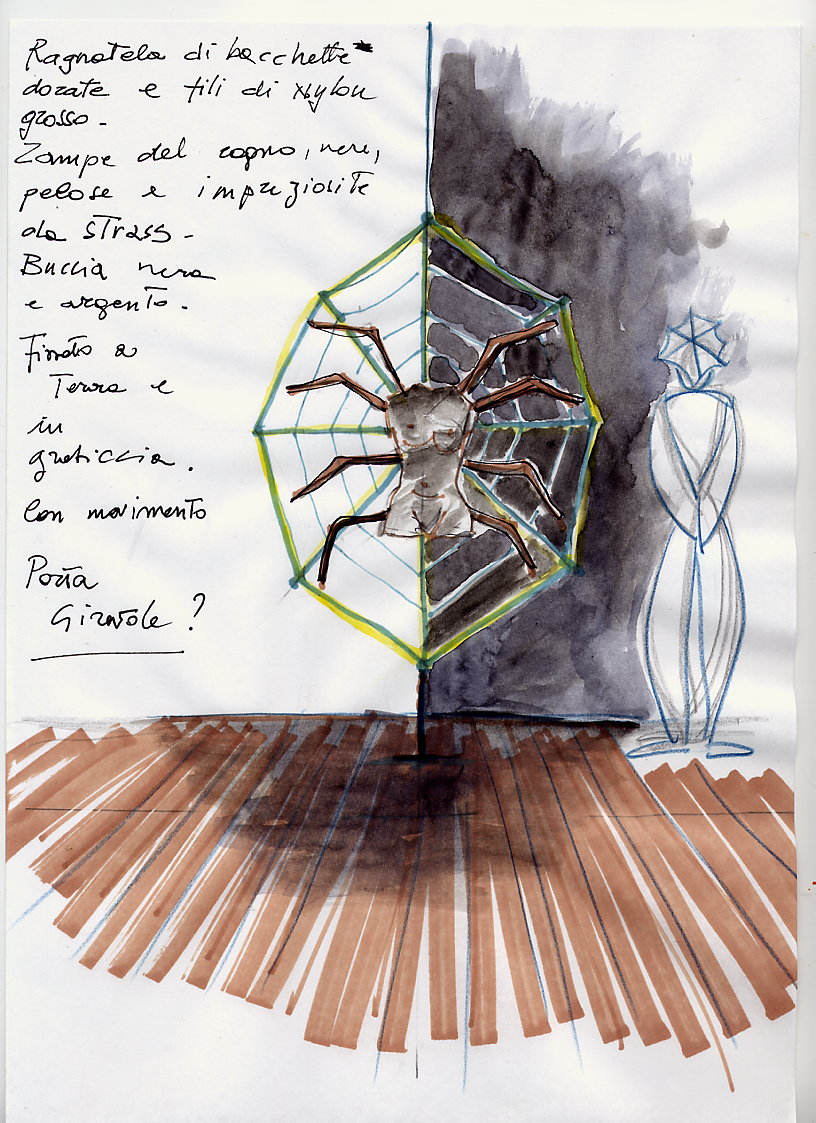 Ragnatela di bacchette
dorate e fili di nylon
grosso -
Zampe del ragno, nere,
pelose e impreziosite
da strass -
Buccia nera
e argento.
Fissato a
Terra e
in
graticcia.
Con movimento
Porta
Girevole?